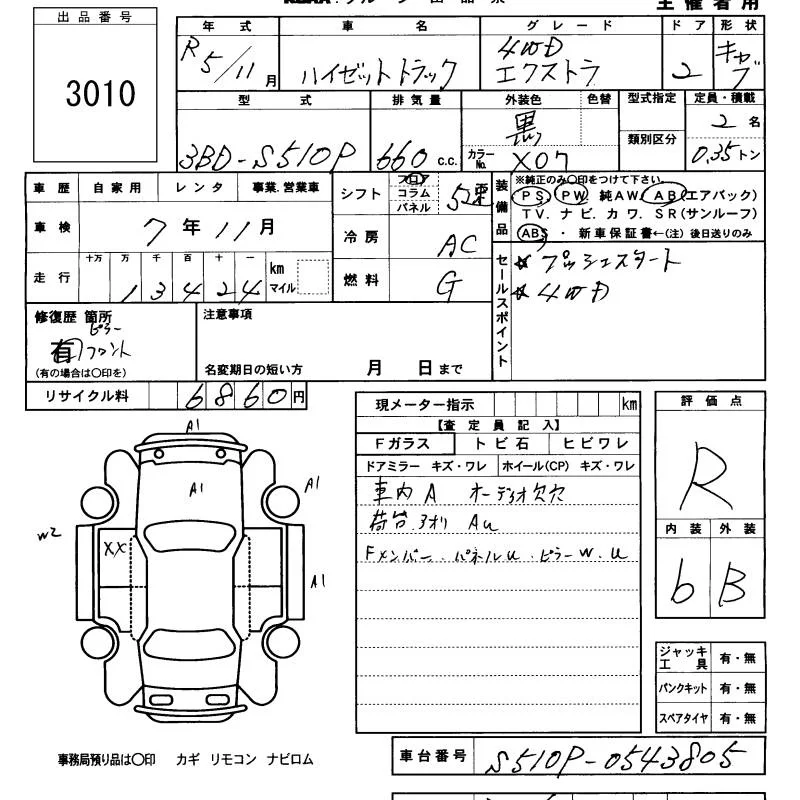 主催者用
出品番号
3010
年式 車名 グレード ドア 形状
R5/11月 ハイゼットトラック 4WD エクストラ 2 キャブ
型式 排気量 外装色 色替 型式指定 定員・積載
3BD-S510P 660 c.c. 黒 類別区分 2名
カラーNo. X07 0.35トン
車歴 自家用 レンタ 事業.営業車
シフト フロア コラム パネル 5速
装備品 ※純正のみ○印をつけて下さい。
PS. PW. 純AW. AB(エアバック)
TV. ナビ. カワ. SR(サンルーフ)
ABS・新車保証書←(注)後日送りのみ
車検 7年11月
冷房 AC
走行 十万 万 千 百 十 一 km マイル
13424
燃料 G
セールスポイント
☆ プッシュスタート
☆ 4WD
修復歴 箇所
ピラー
有 フロント
(有の場合は○印を)
注意事項
名変期日の短い方 月 日まで
リサイクル料 6860円
現メーター指示 km
【査定員記入】
Fガラス トビ石 ヒビワレ
ドアミラー キズ・ワレ ホイール(CP) キズ・ワレ
車内A オーディオ欠欠
荷台.3オリ Au
Fメンバー.パネルu.ピラーw.u
評価点
R
内装 外装
6 B
A1
A1
A1
W2
XX
A1
ジャッキ工具 有・無
パンクキット 有・無
スペアタイヤ 有・無
事務局預り品は○印 カギ リモコン ナビロム
車台番号 S510P-0543805